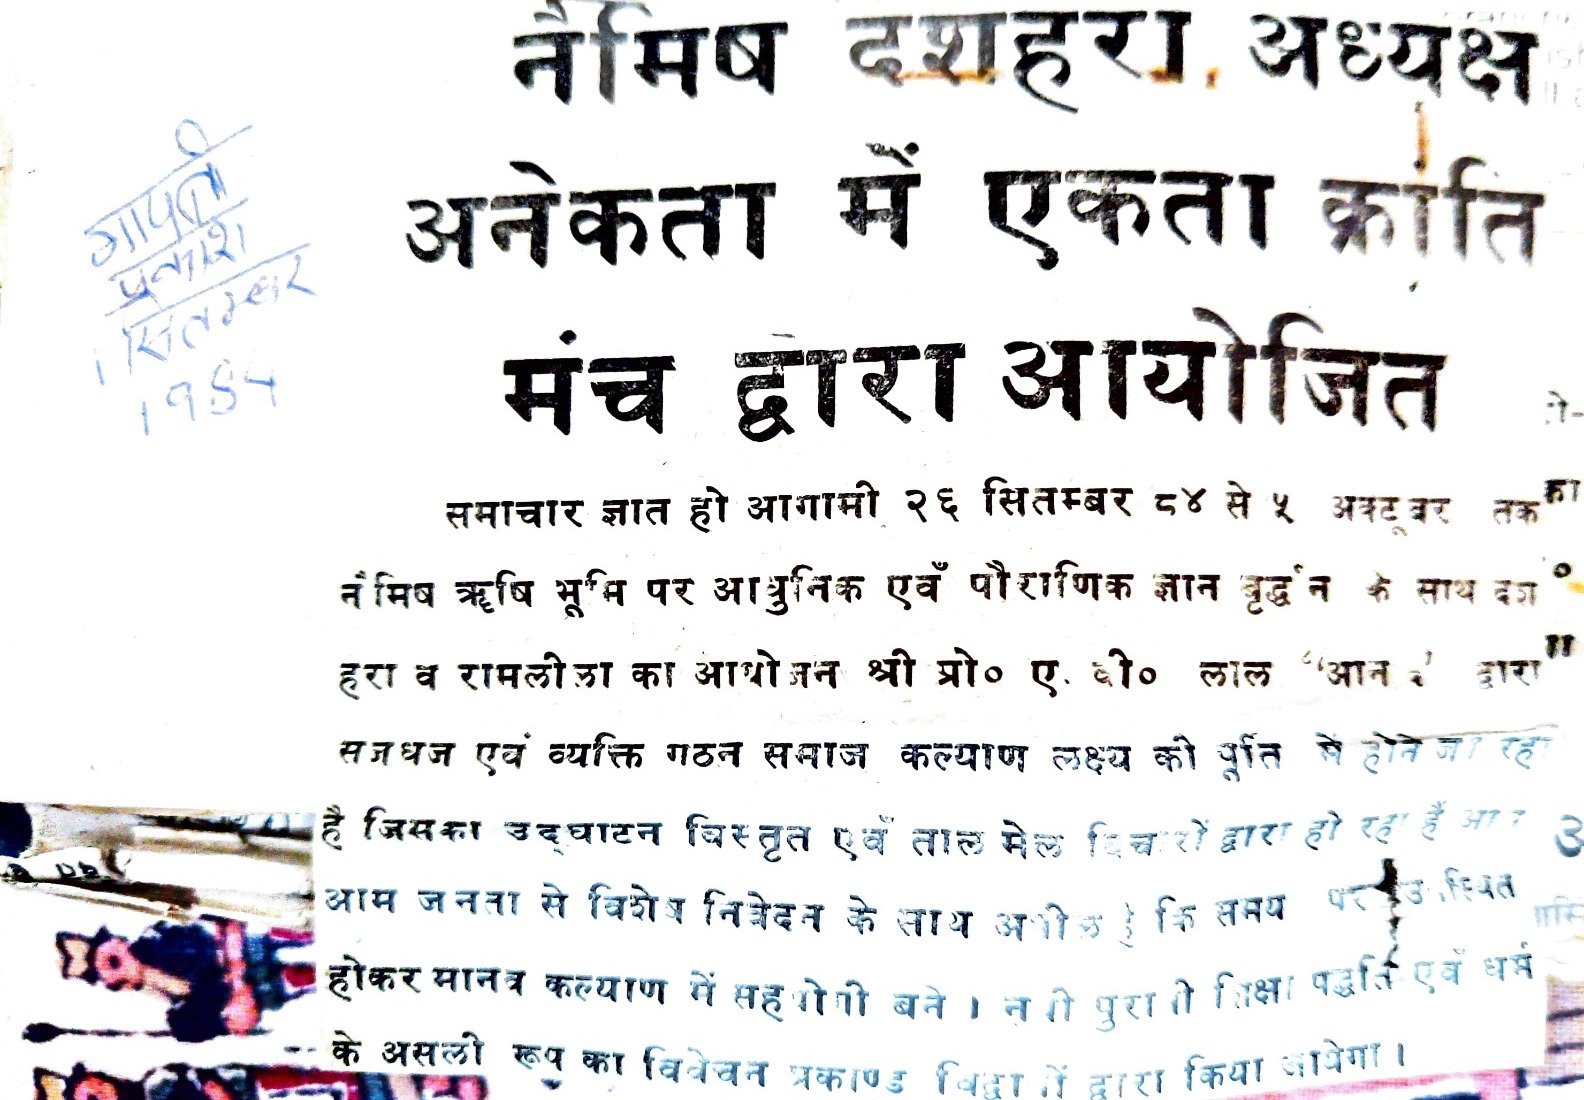 नैमिष दशहरा, अध्यक्ष
अनेकता में एकता क्रांति
मंच द्वारा आयोजित
प्रकाश
सितम्बर
1984
समाचार ज्ञात हो आगामी २६ सितम्बर ८४ से ५ अक्टूबर तक
नैमिष ऋषि भूमि पर आधुनिक एवँ पौराणिक ज्ञान वृर्द्धन के साथ दश
हरा व रामलीला का आयोजन श्री प्रो० ए. वी० लाल "आनन्द" द्वारा
सजधज एवं व्यक्ति गठन समाज कल्याण लक्ष्य की पूर्ति में होने जा रहा
है जिसका उद्घाटन विस्तृत एवँ ताल मेल विचारों द्वारा हो रहा है
आम जनता से विशेष निवेदन के साथ अपील है कि समय पर उपस्थित
होकर मानव कल्याण में सहयोगी बने । नयी पुरानी शिक्षा पद्धति एवँ धर्म
के असली रूप का विवेचन प्रकाण्ड विद्वानों द्वारा किया जायेगा ।